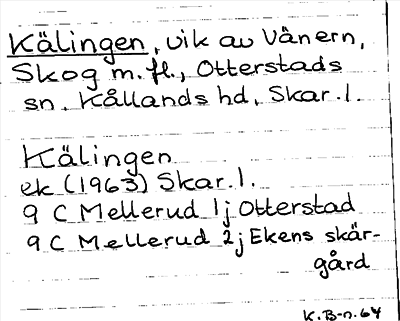 Kälingen, vik av Vänern,
Skog m. fl., Otterstads
sn. Kållands hd, Skar. l.
Kälingen
ek (1963) Skar. l.
9 C Mellerud 1j Otterstad
9 C Mellerud 2j Ekens skär-
gård
K. B-n. 64